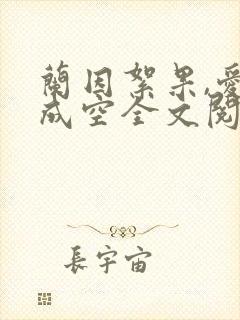 蘭因絮果,愛
成空全文閱
長宇宙